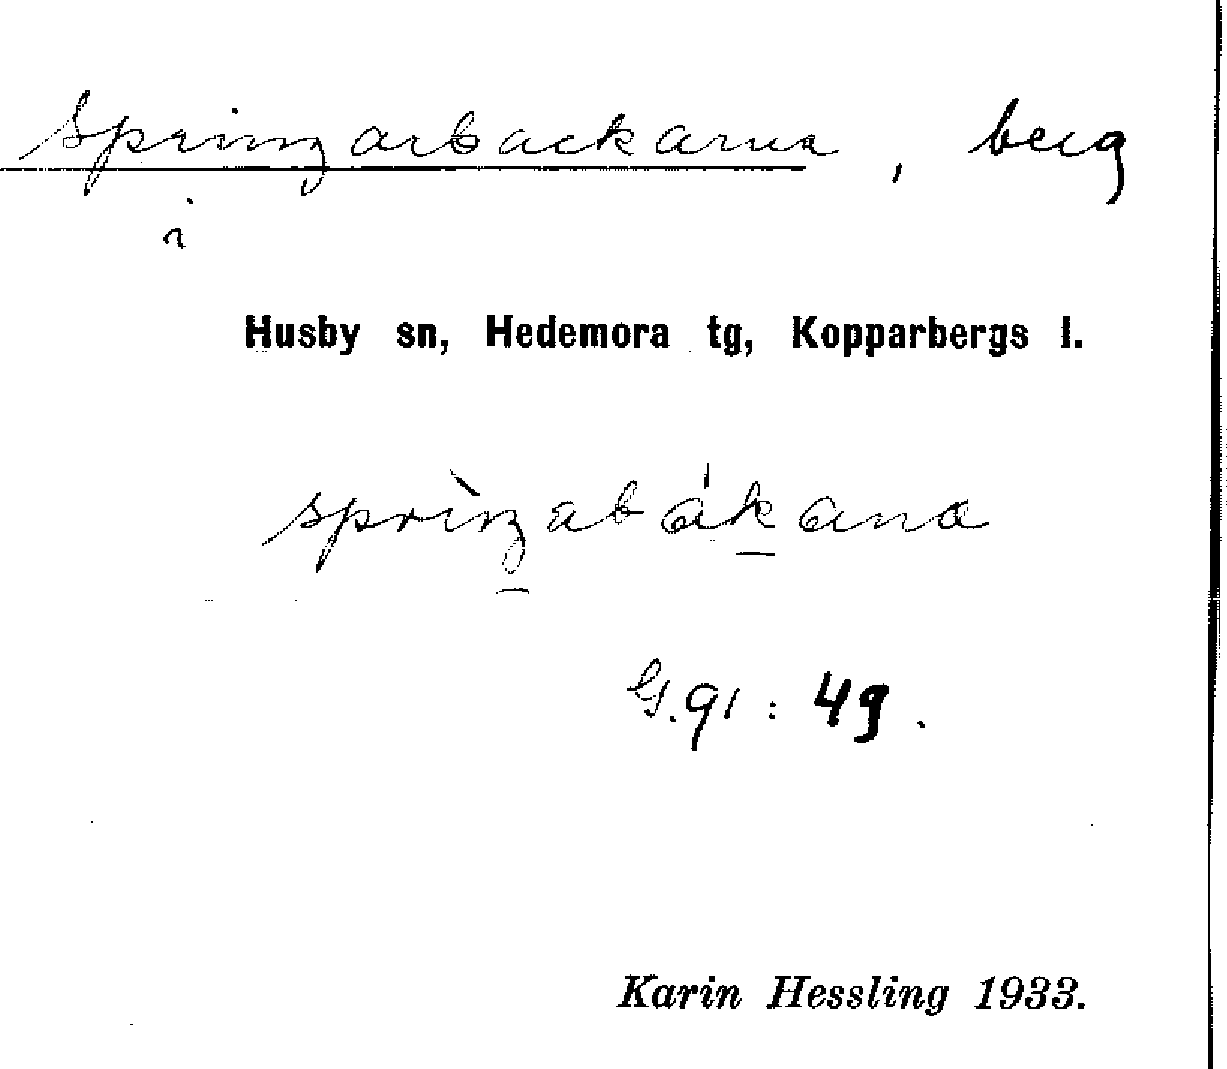 Springarbackarna, berg
i
Husby sn, Hedemora tg, Kopparbergs l.
G.91 : 49.
Karin Hessling 1933.